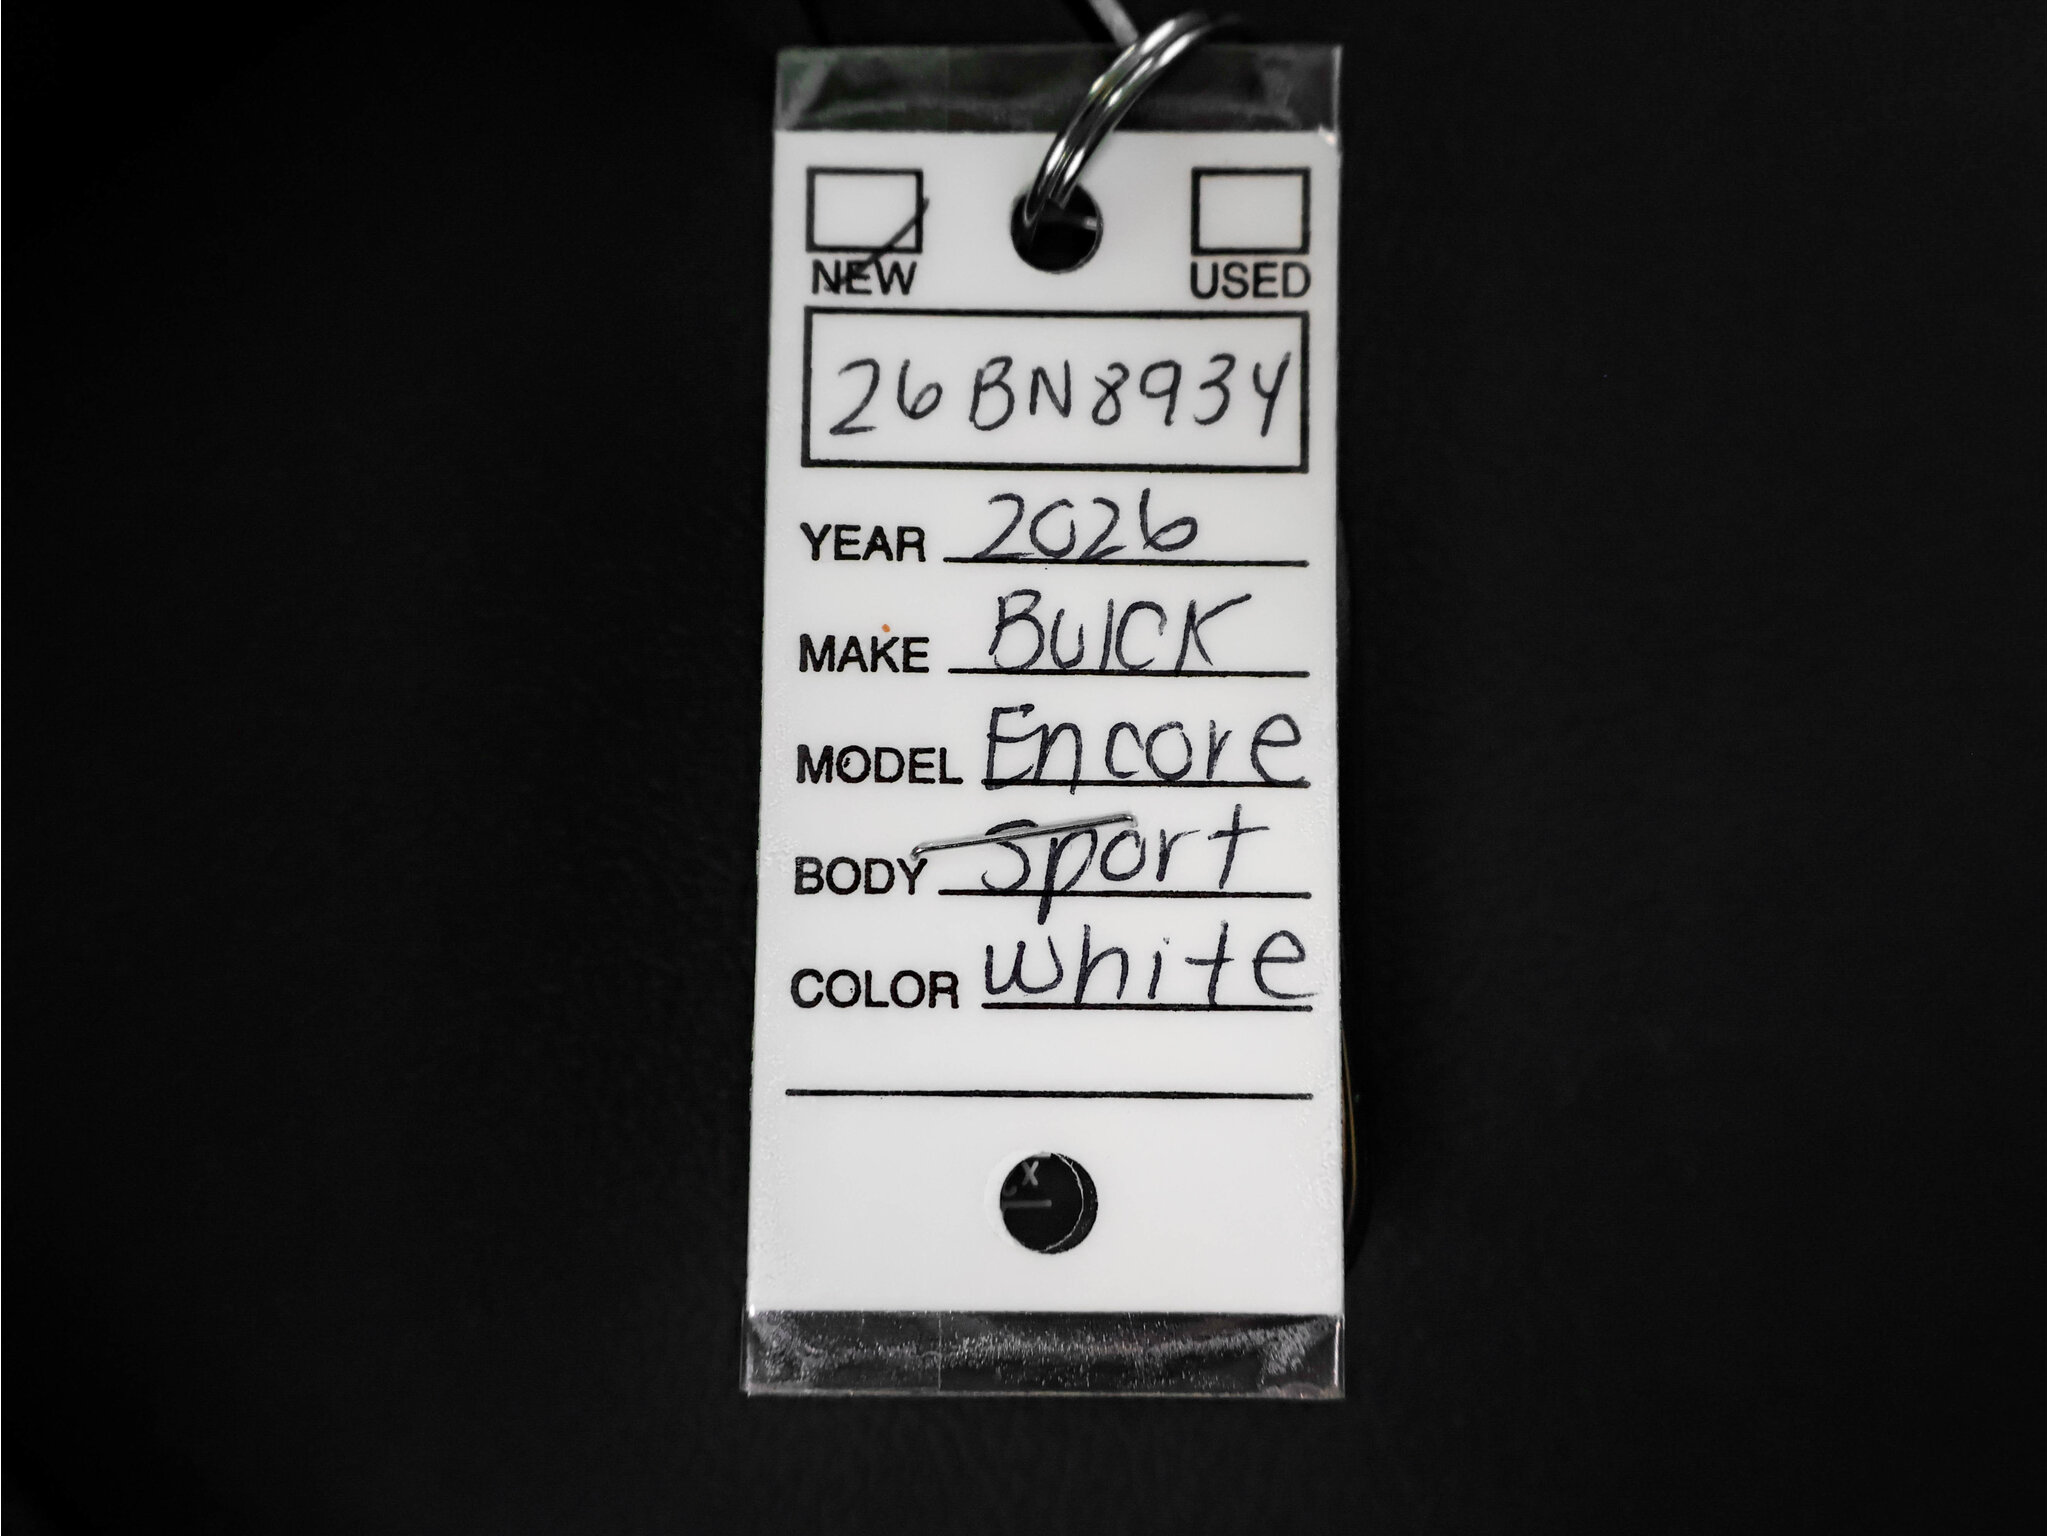 NEW USED
26BN8934
YEAR 2026
MAKE BUICK
MODEL Encore
BODY Sport
COLOR white
x